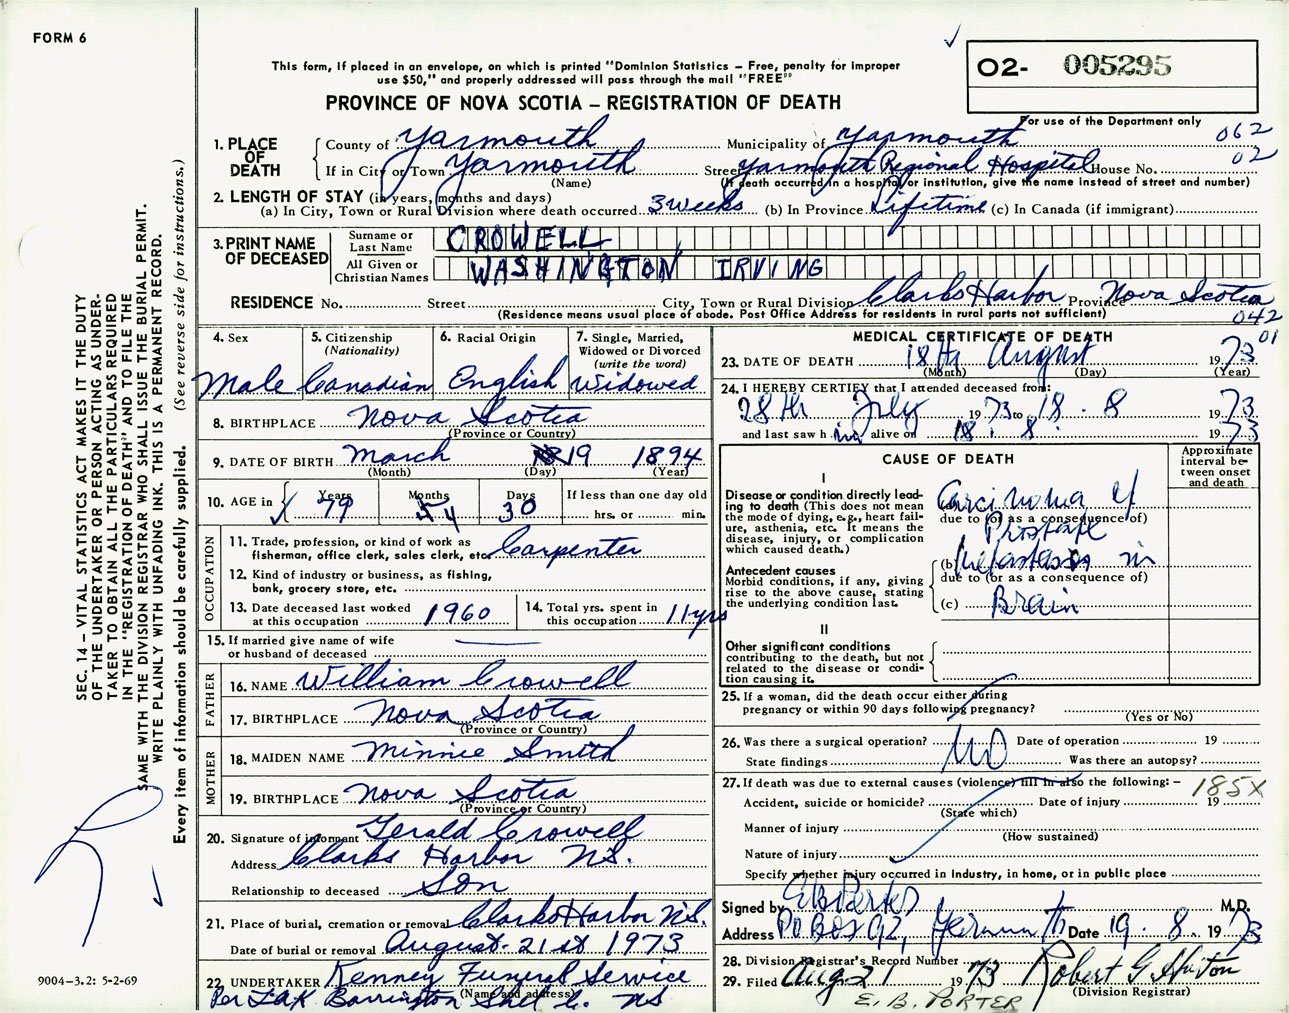 FORM 6
This form, if placed in an envelope, on which is printed "Dominion Statistics – Free, penalty for improper
use $50," and properly addressed will pass through the mail "FREE"
PROVINCE OF NOVA SCOTIA – REGISTRATION OF DEATH
O2- 005295
For use of the Department only
062
02
1. PLACE OF DEATH
County of Yarmouth Municipality of Yarmouth
If in City or Town Yarmouth Street Yarmouth Regional Hospital House No.
(Name) (If death occurred in a hospital or institution, give the name instead of street and number)
2. LENGTH OF STAY (in years, months and days)
(a) In City, Town or Rural Division where death occurred 3 weeks (b) In Province Lifetime (c) In Canada (if immigrant)
3. PRINT NAME OF DECEASED
Surname or Last Name CROWELL
All Given or Christian Names WASHINGTON IRVING
RESIDENCE No. Street City, Town or Rural Division Clarks Harbor Province Nova Scotia
(Residence means usual place of abode. Post Office Address for residents in rural parts not sufficient)
042
01
4. Sex 5. Citizenship (Nationality) 6. Racial Origin 7. Single, Married, Widowed or Divorced (write the word)
Male Canadian English Widowed
8. BIRTHPLACE Nova Scotia
(Province or Country)
9. DATE OF BIRTH March 19 1894
(Month) (Day) (Year)
10. AGE in Years Months Days If less than one day old
79 4 30 hrs. or min.
OCCUPATION
11. Trade, profession, or kind of work as
fisherman, office clerk, sales clerk, etc. Carpenter
12. Kind of industry or business, as fishing,
bank, grocery store, etc.
13. Date deceased last worked at this occupation 1960 14. Total yrs. spent in this occupation 11 yrs
15. If married give name of wife
or husband of deceased
FATHER
16. NAME William Crowell
17. BIRTHPLACE Nova Scotia
(Province or Country)
MOTHER
18. MAIDEN NAME Minnie Smith
19. BIRTHPLACE Nova Scotia
(Province or Country)
20. Signature of informant Gerald Crowell
Address Clarks Harbor NS.
Relationship to deceased Son
21. Place of burial, cremation or removal Clarks Harbor N.S.
Date of burial or removal August 21st 1973
22. UNDERTAKER Kenney Funeral Service
(Name and address)
Per Barrington NS
MEDICAL CERTIFICATE OF DEATH
23. DATE OF DEATH 18th August 1973
(Month) (Day) (Year)
24. I HEREBY CERTIFY that I attended deceased from:
28th July 1973 to 18 . 8 1973
and last saw him alive on 18 . 8 . 1973
CAUSE OF DEATH
Approximate interval between onset and death
I
Disease or condition directly lead-
ing to death (This does not mean
the mode of dying, e.g., heart fail-
ure, asthenia, etc. It means the
disease, injury, or complication
which caused death.)
(a) Carcinoma of
due to (or as a consequence of)
Prostate
Antecedent causes
Morbid conditions, if any, giving
rise to the above cause, stating
the underlying condition last.
(b) Metastases in
due to (or as a consequence of)
(c) Brain
II
Other significant conditions
contributing to the death, but not
related to the disease or condi-
tion causing it.
25. If a woman, did the death occur either during
pregnancy or within 90 days following pregnancy?
(Yes or No)
26. Was there a surgical operation? NO Date of operation 19
State findings Was there an autopsy?
27. If death was due to external causes (violence) fill in also the following: –
185X
Accident, suicide or homicide? Date of injury 19
(State which)
Manner of injury
(How sustained)
Nature of injury
Specify whether injury occurred in industry, in home, or in public place
Signed by E B Porter M.D.
Address PO BOX 92, Yarmouth Date 19 . 8 . 1973
28. Division Registrar's Record Number
29. Filed Aug 21 1973 Robert G
(Division Registrar)
E. B. PORTER
SEC. 14 – VITAL STATISTICS ACT MAKES IT THE DUTY
OF THE UNDERTAKER OR PERSON ACTING AS UNDER-
TAKER TO OBTAIN ALL THE PARTICULARS REQUIRED
IN THE "REGISTRATION OF DEATH" AND TO FILE THE
SAME WITH THE DIVISION REGISTRAR WHO SHALL ISSUE THE BURIAL PERMIT.
WRITE PLAINLY WITH UNFADING INK. THIS IS A PERMANENT RECORD.
Every item of information should be carefully supplied. (See reverse side for instructions.)
9004–3.2: 5-2-69